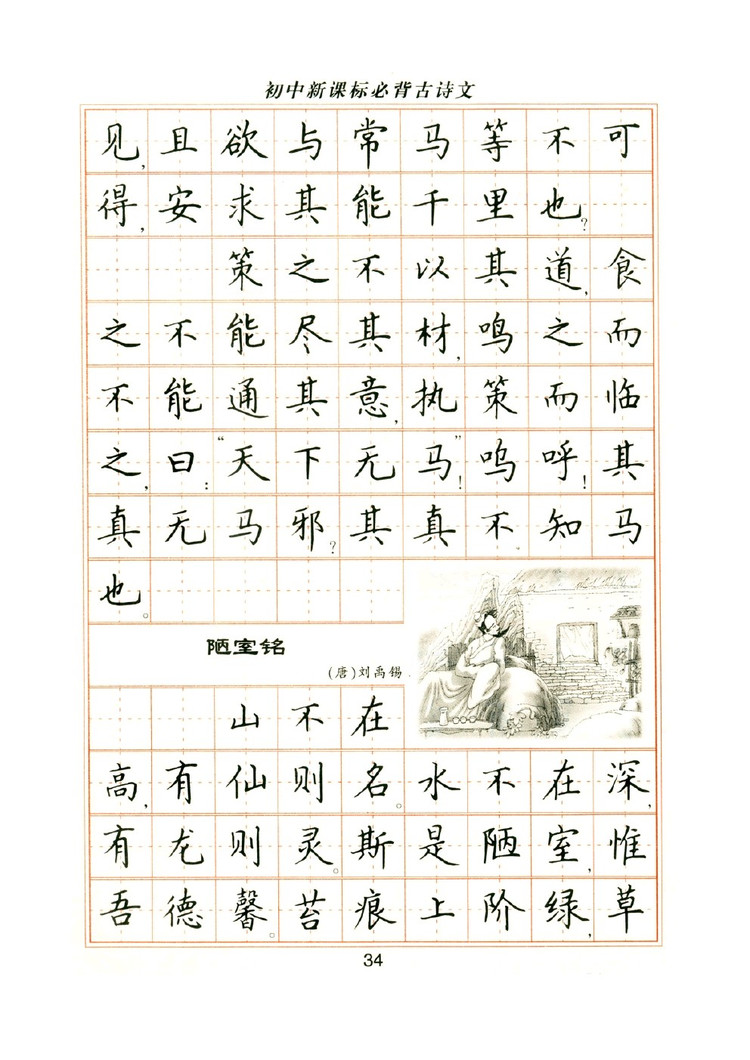 初中新课标必背古诗文
见,且欲与常马等不可
得,安求其能千里也?
策之不以其道,食
之不能尽其材,鸣之而
不能通其意,执策而临
之,曰:“天下无马”!呜呼!其
真无马邪?其真不。知马
也。
陋室铭
(唐)刘禹锡
山不在
高,有仙则名。水不在深,
有龙则灵。斯是陋室,惟
吾德馨。苔痕上阶绿,草
34